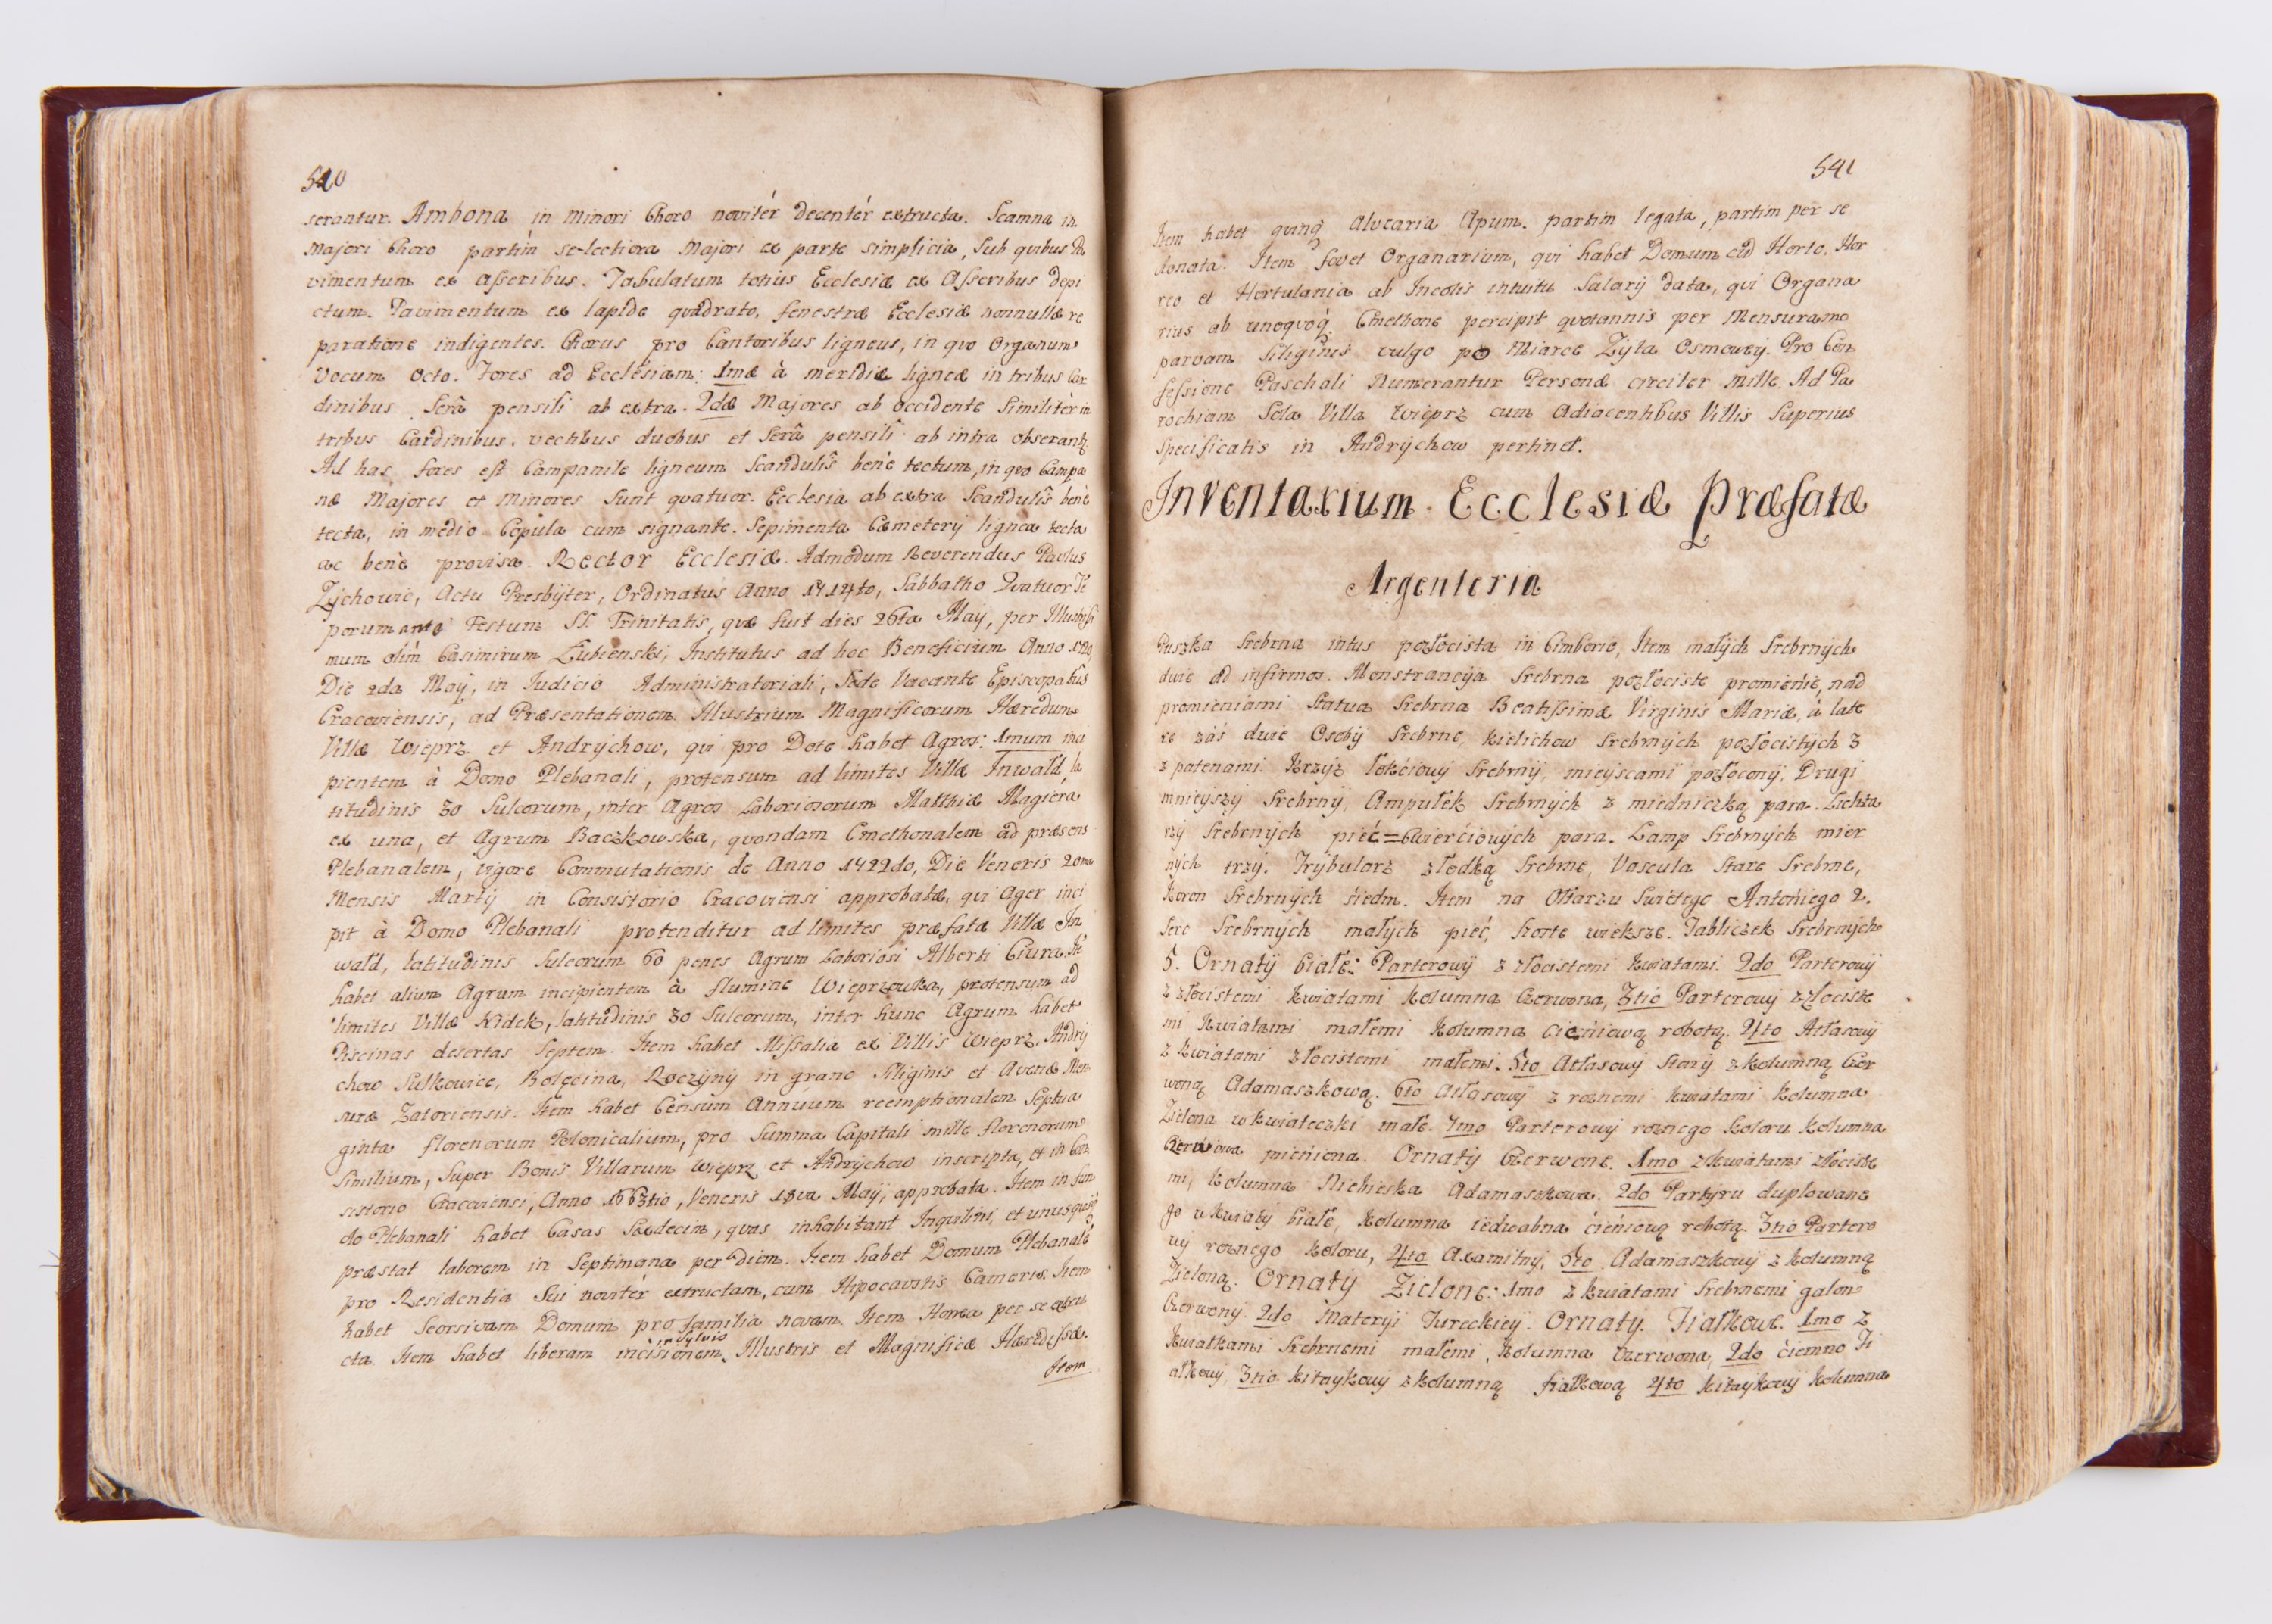 540
serantur. Ambona in minori Choro novitér decentér extructa. Scamna in
majori Choro partim se-lectiora majori ex parte simplicia, Sub quibus Pa
vimentum ex asseribus. Tabulatum totius Ecclesiæ ex Asseribus depi
ctum. Pavimentum ex lapide quadrato, fenestræ Ecclesiæ nonnullæ re
paratione indigentes. Chorus pro Cantoribus ligneus, in quo Organum
Vocum octo. Fores ad Ecclesiam: 1mæ à meridie ligneæ in tribus Car
dinibus Serâ pensili ab extra. 2dæ Majores ab occidente Similitèr in
tribus Cardinibus, vectibus duobus et Serâ pensilî ab intra obserantq
Ad has fores est Campanile ligneum Scandulîs benè tectum, in quo Campa
næ Majores et minores Sunt quatuor. Ecclesia ab extra Scandulîs benè
tecta, in medio Copula cum signante. Sepimenta Cæmeterÿ lignea tecta
ac benè provisa. Rector Ecclesiæ. Admodum Reverendus Paulus
Zÿchowic, Actu Presbÿter, Ordinatus Anno 1714to, Sabbatho Quatuor Te
porum ante Festum SS. Trinitatis, quæ fuit dies 26ta Maÿ, per Illustrissi
mum olim Casimirum Łubienski, Institutus ad hoc Beneficium Anno 1720
Die 2da Maÿ, in Iudicio Administratoriali, Sede Vacante Episcopatus
Cracoviensis, ad Præsentationem Illustrium Magnificorum Hæredum
Villæ Wieprz et Andrÿchow, qui pro Dote habet Agros: 1mum inci
pientem à Domo Plebanali, protensum ad limites Villæ Inwałd, la
titudinis 30 Sulcorum, inter Agros Laboriosorum Matthiæ Magiera
ex una, et Agrum Baczkowska, quondam Cmethonalem ad præsens
Plebanalem, vigore Commutationis de Anno 1722do, Die Veneris 20ma
Mensis Martÿ in Consistorio Cracoviensi approbatæ, qui Ager inci
pit à Domo Plebanali protenditur ad limites præfatæ Villæ In
wałd, latitudinis Sulcorum 60 penes Agrum Laboriosi Alberti Ciura. Ite
habet alium Agrum incipientem à flumine Wieprzowka, protensum ad
limites Villæ Nidek, latitudinis 30 Sulcorum, inter hunc Agrum habet
Piscinas desertas Septem. Item habet Missalia ex Villis Wieprz, Andrÿ
chow Sulkowice, Bolęcina, Roczÿnÿ in grano Siliginis et Avenæ Men
suræ Zatoriensis. Item habet Censum Annuum reemptionalem Septua
ginta florenorum Polonicalium, pro Summa Capitali mille florenorum
Similium, Super Bonis Villarum Wieprz et Andrÿchow inscripta, et in Con
sistorio Cracoviensi, Anno 1663tio, Veneris 18va Maÿ, approbata. Item in fun
do Plebanali habet Casas Sedecim, quas inhabitant Inquilini, et unusquisq
præstat laborem in Septimana per Diem. Item habet Domum Plebanalē
pro Residentia Sui novitér extructam, cum Hipocaustis Cameris. Item
habet Seorsivam Domum pro familia novam. Item Horrea per se extru
cta. Item habet liberam incisionem in Sylvis Illustris et Magnificæ Hæredissæ.
Item
541
Item habet quinq Alvearia Apum, partim legata, partim per se
donata. Item fovet Organarium, qui habet Domum cū Horto, Hor
reo et Hortulania ab Incolis intuitu Salarÿ data, qui Organa
rius ab unoquoq Cmethone percipit quotannis per Mensuram
parvam Siliginis vulgo po Miarce Zÿta Osmowÿ. Pro Con
fessione Paschali Numerantur Personæ circiter mille. Ad Pa
rochiam Sola Villa Wieprz cum Adiacentibus Villis Superius
Specificatis in Andrÿchow pertinet.
Inventarium Ecclesiæ Præfatæ
Argenteria
Puszka Srebrna intus pozłocista in Cimborio, Item małÿch Srebrnÿch
dwie ad infirmos. Monstrancÿa Srebrna pozłociste promienie, nad
promieniami Statua Srebrna Beatissimæ Virginis Mariæ, à late
re záś dwie Osobÿ Srebrne, kielichow srebrnÿch pozłocistÿch 3
z patenami. Krzÿż łokciowÿ Srebrnÿ, mieÿscami pozłoconÿ, Drugi
mnieÿszÿ Srebrnÿ, Ampułek Srebrnÿch z miedniczką para. Lichta
rzÿ Srebrnÿch pięć=Cwierciowÿch para. Lamp Srebrnÿch mier
nÿch trzÿ. Trÿbularz z łodką Srebrne, Vascula Stare Srebrne,
Koron Srebrnÿch siedm. Item na Ołtarzu Swiętego Antoniego 2.
Serc Srebrnÿch małÿch pięć, szoste większe. Tabliczek Srebrnÿch
5. Ornatÿ białe: Parterowÿ z złocistemi kwiatami. 2do Parterowÿ
z złocistemi kwiatami kolumna Czerwona, 3tio Parterowÿ z złociste
mi kwiatami małemi Kolumna cieniową robotą. 4to Atłasowÿ
z kwiatami złocistemi małemi. 5to Atłasowÿ Starÿ z kolumną Czer
woną Adamaszkową. 6to Atłasowÿ z roznemi kwiatami kolumna
Zielona w kwiateczki małe. 7mo Parterowÿ roznego koloru kolumna
Czerwona mieniona. Ornatÿ Czerwone. 1mo z kwiatami złociste
mi, kolumna Niebieska Adamaszkowa. 2do Partÿru duplowane
go w kwiatÿ białe, kolumna iedwabna cieniową robotą. 3tio Partero
wÿ roznego koloru, 4to Axamitnÿ, 5to Adamaszkowÿ z kolumną
Zieloną. Ornatÿ Zielone: 1mo z kwiatami Srebrnemi galon
Czerwonÿ. 2do Materÿi Tureckieÿ. Ornatÿ Fiałkowe. 1mo z
kwiatkami Srebrnemi małemi, kolumna Czerwona, 2do ciemno Fi
ałkowÿ, 3tio kitaÿkowÿ z kolumną fiałkową 4to kitaÿkowÿ kolumna